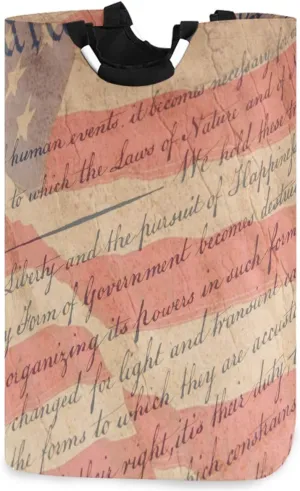 human events, it becomes necessary
to which the Laws of Nature and of
We hold these
Liberty and the pursuit of Happeness
Form of Government becomes destruc
organizing its powers in such form
changed for light and transient
the forms to which they are accusto
their right, it is thair duty, t
which constrains